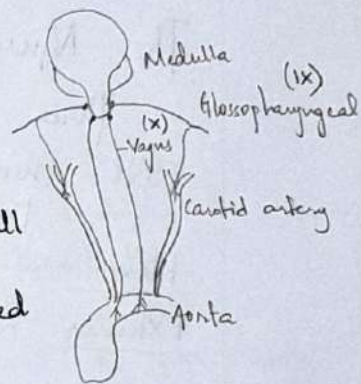 Medulla
(IX)
Glossopharyngeal
(X)
Vagus
Carotid artery
ll
ed
Aorta